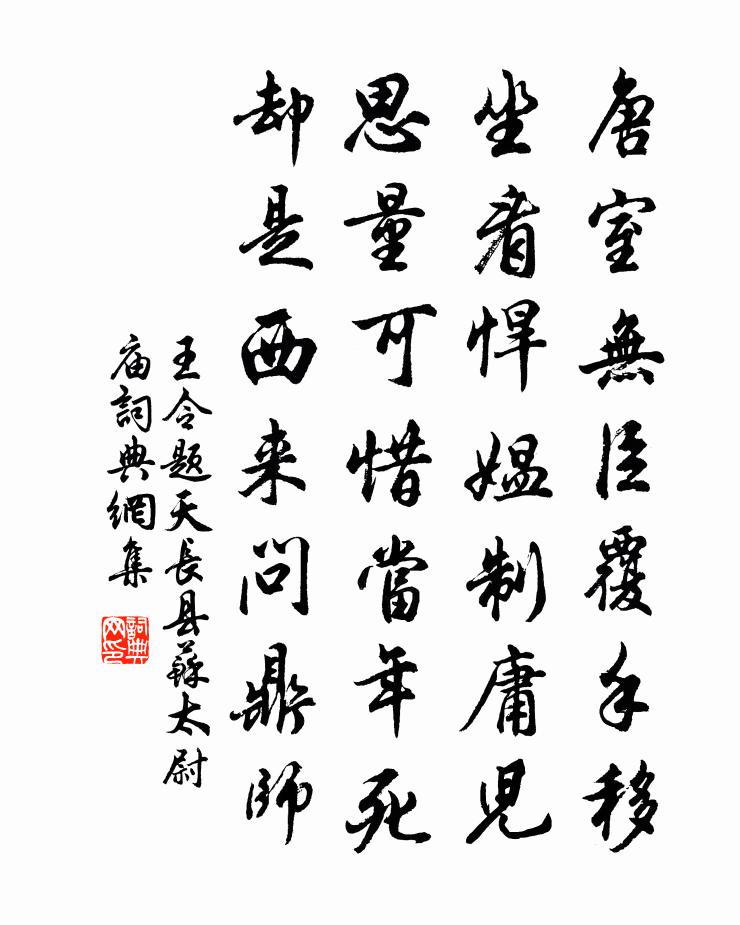 唐室無臣覆手移
坐看悍媼制庸兒
思量可惜當年死
却是西来問鼎師
王令题天長县蘇太尉
庙詞典網集
詞典
网印